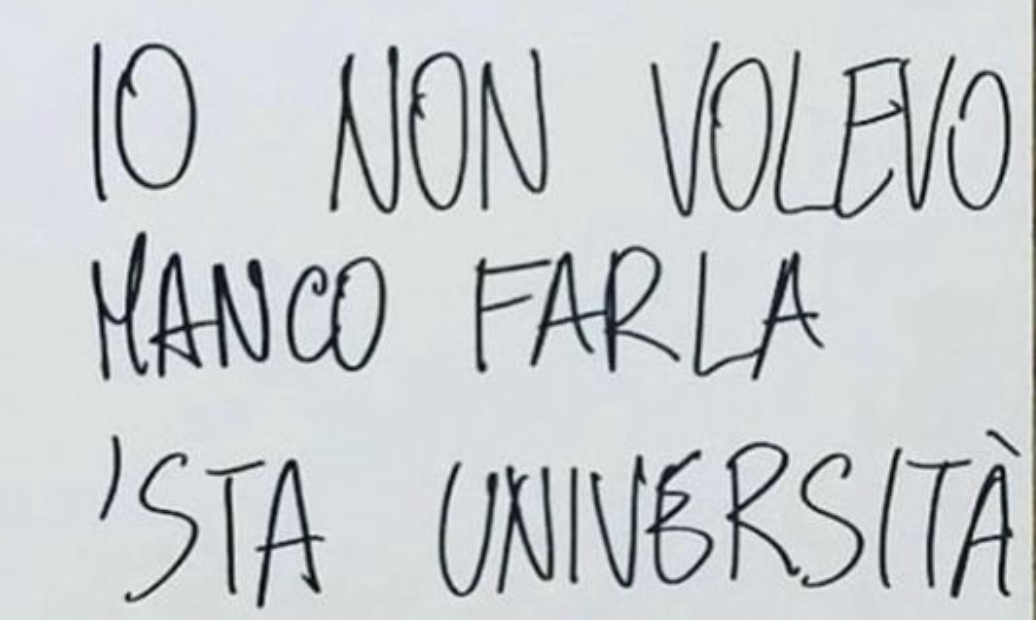 IO NON VOLEVO
MANCO FARLA
'STA UNIVERSITÀ